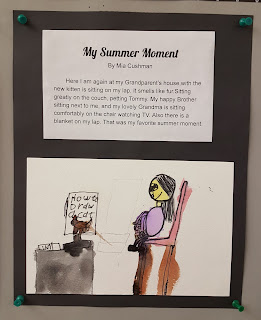 My Summer Moment
By Mia Cushman
Here I am again at my Grandparent's house with the
new kitten is sitting on my lap. It smells like fur. Sitting
greatly on the couch, petting Tommy. My happy Brother
sitting next to me, and my lovely Grandma is sitting
comfortably on the chair watching TV. Also there is a
blanket on my lap. That was my favorite summer moment.
How to
Draw